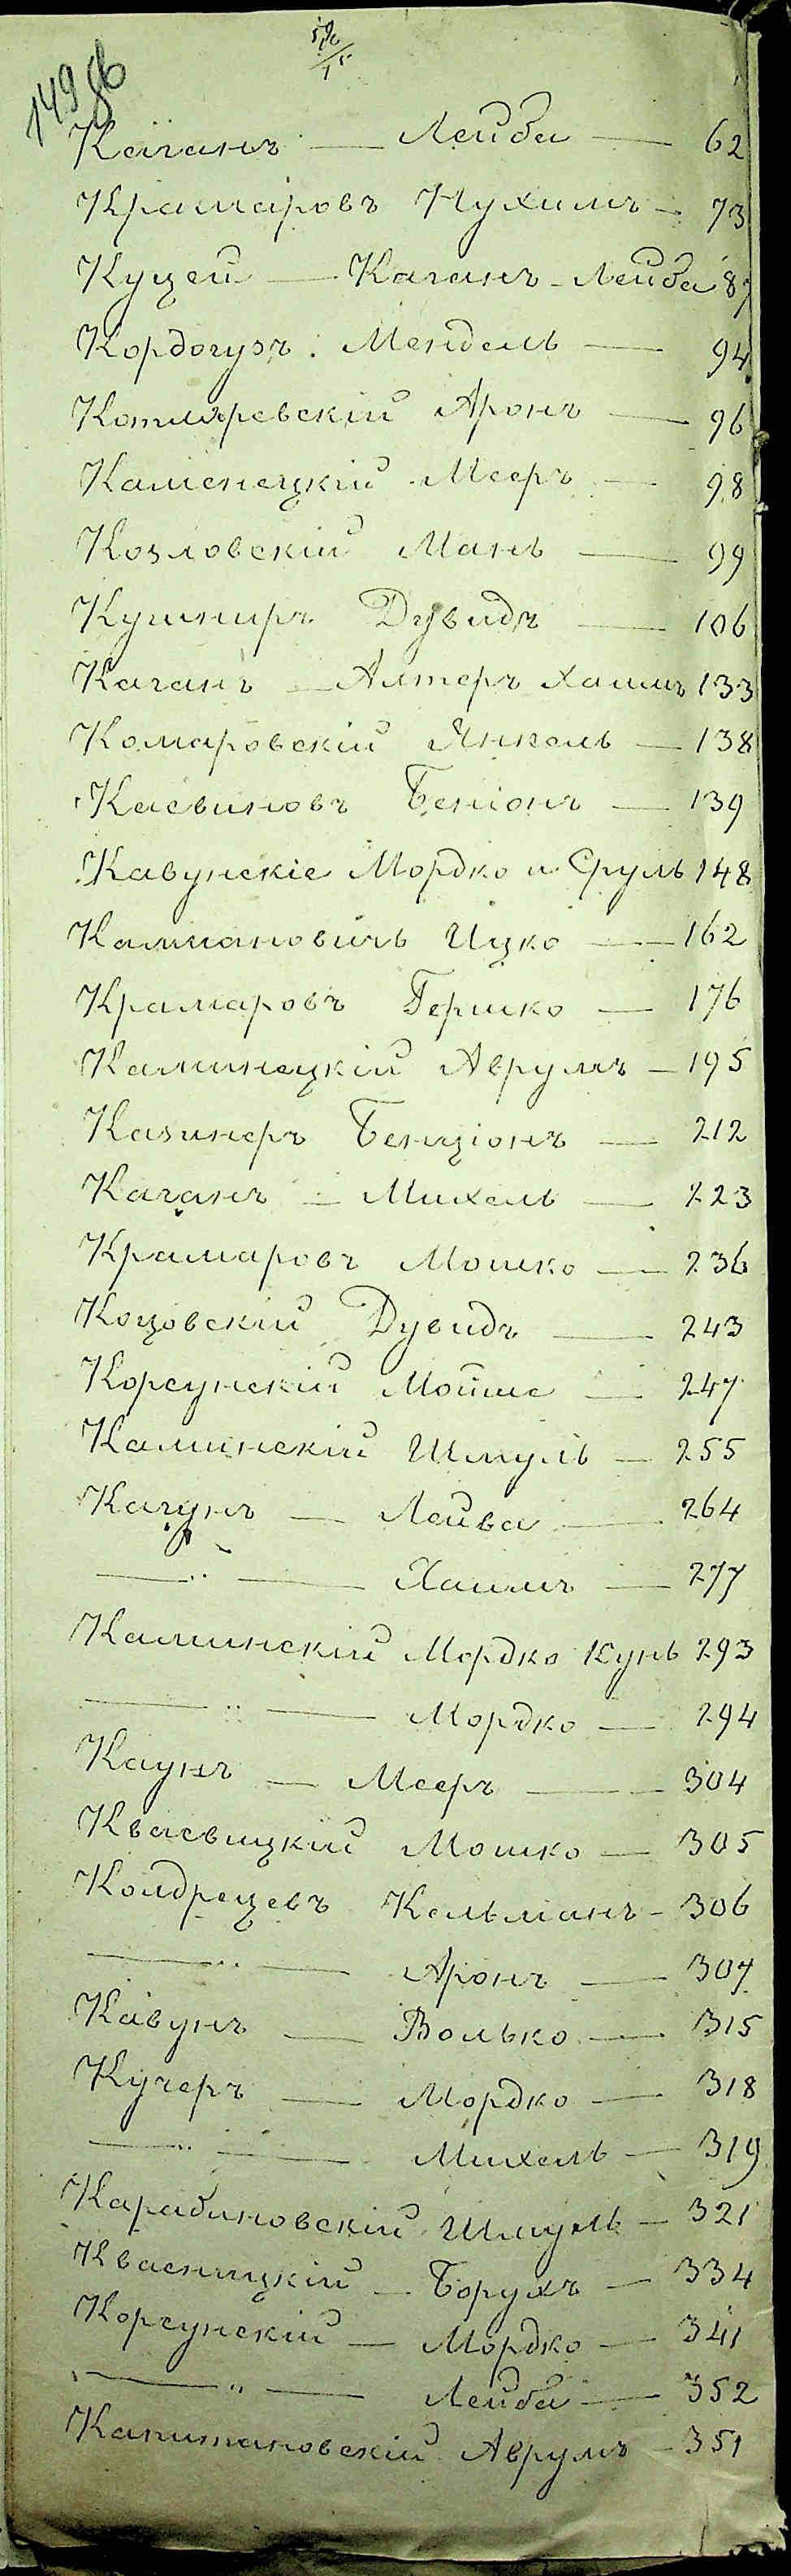 149
Каганъ — Лейба — 62
Крамаровъ Нухимъ — 73
Куцей — Каганъ - Лейба 87
Кордогузъ Мендель — 94
Котляревскій Аронъ — 96
Каменецкій Мееръ — 98
Козловскій Мань — 99
Кушниръ Дувидъ — 106
Каганъ — Алтеръ Хаимъ 133
Комаровскій Янкель — 138
Касвиновъ Беніонъ — 139
Кавунскіе Мордко и Сруль 148
Калмановичъ Ицко — 162
Крамаровъ Гершко — 176
Калинецкій Аврумъ — 195
Казинеръ Бенціонъ — 212
Каганъ — Михель — 223
Крамаровъ Мошко — 236
Коцовскій Дувидъ — 243
Корсунскій Мойше — 247
Калинскій Шмуль — 255
Кагунъ — Лейва — 264
— " — Хаимъ — 277
Калинскій Мордко Кунь 293
— " — Мордко — 294
Каунъ — Мееръ — 304
Квасвицкій Мошко — 305
Колдрецевъ Кельманъ - 306
— " — Аронъ — 307
Кавунъ — Волько — 315
Кучеръ — Мордко — 318
— " — Михель — 319
Карабиновскій Шмуль — 321
Квасницкій — Борухъ — 334
Корсунскій — Мордко — 341
— " — Лейба — 352
Капитановскій Аврумъ - 351